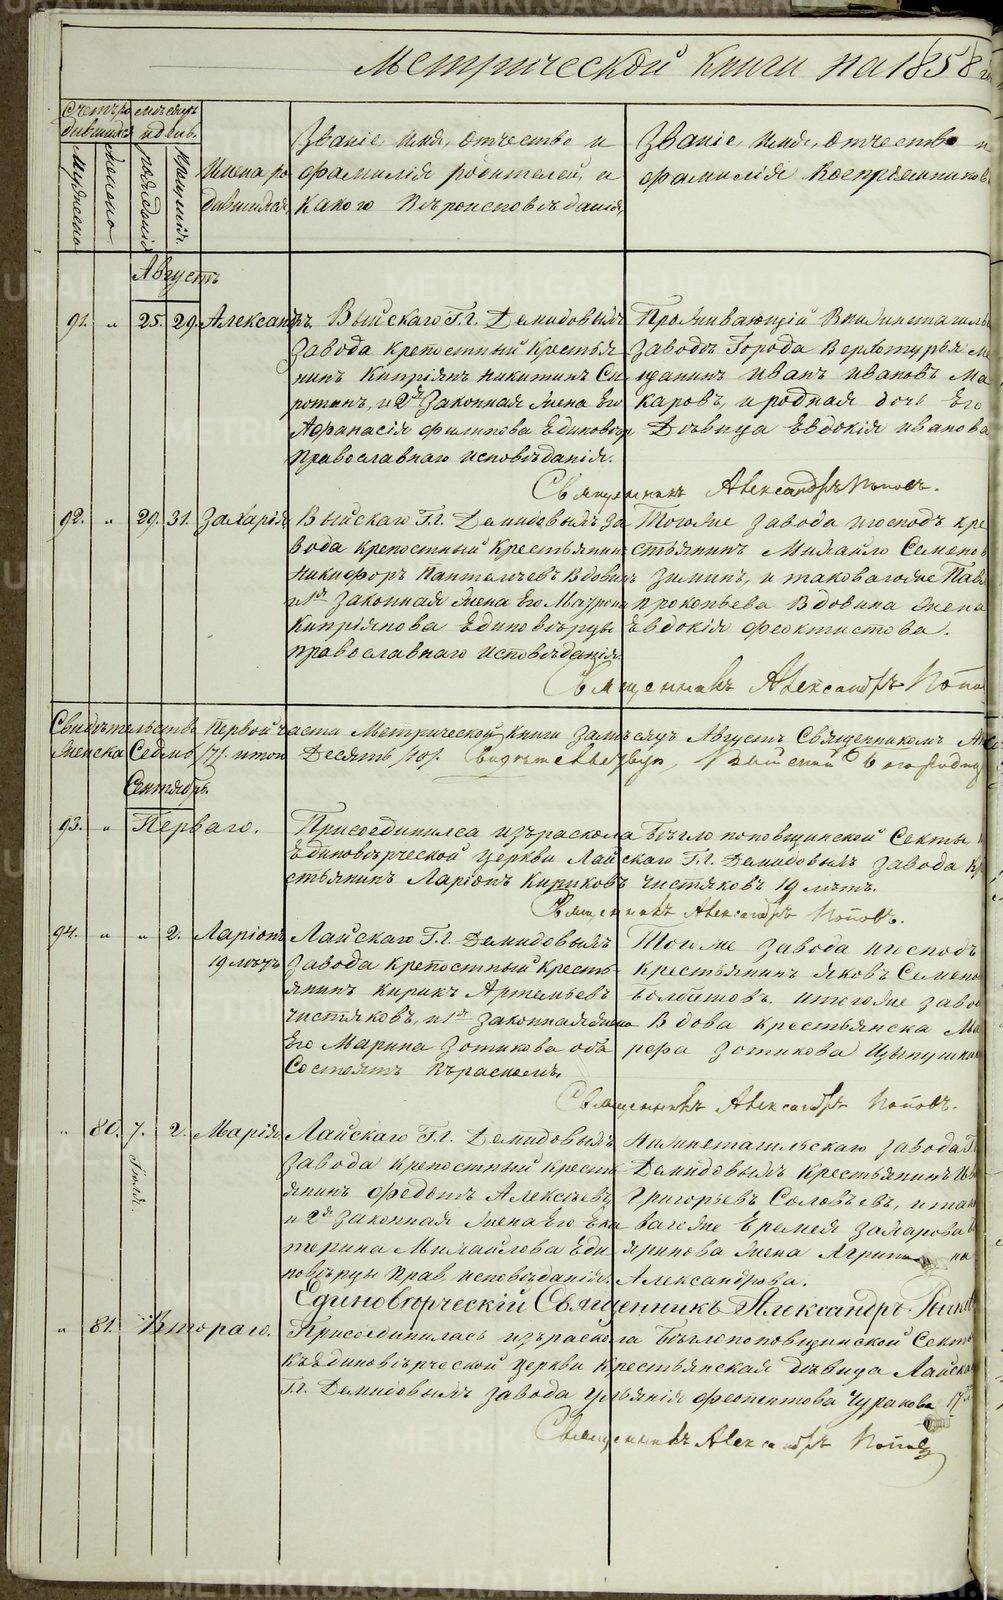 Метрической книги на 1858
Счетъ ро
дившихся
Мужеска
Женска
месяцъ
и день
рожденія
крещенія
Имена ро
дившихся
Званіе, имя, отчество и
фамилія родителей, и
какого вѣроисповѣданія
Званіе, имя, отчество и
фамилія Воспріемниковъ
Августъ
91. " 25. 29. Александръ.
Выйскаго Г.г. Демидовыхъ
завода крепостный крестья
нинъ Кипріянъ Никитинъ Си
ротинъ, и 2я законная жена Его
Афанасія Филипова Единоверцы
Православнаго исповѣданія.
Проживающій в Нижнетагиль
заводѣ Города Верхотурья ме
щанинъ Иванъ Ивановъ Ма
каровъ, и родная дочь Его
Дѣвица Евдокія Иванова
Священникъ Александръ Поповъ.
92. " 29. 31. Захарія
Выйскаго Г.г. Демидовыхъ за
вода крепостный крестьянинъ
Никифоръ Пантелѣевъ Вдовинъ
и 1я законная жена Его Матрона
Кипріянова Единовѣрцы
православнаго исповѣданія.
Тогоже завода и господъ кре
стьянинъ Михайло Семеновъ
Зиминъ, и таковагоже Пав
Прокопьева Вдовина жена
Евдокія Феоктистова.
Священникъ Александръ Попов
Свидѣтельство Первой части Метрической книги за мѣсяцъ Августъ Священникомъ
женска Седмь /7/. итого Десять /10/.
Сентябрь.
93. " Перваго.
Присоединился изъ раскола Бѣглопоповщинской Секты
Единовѣрческой церкви Лайскаго Г.г. Демидовыхъ завода кр
стьянинъ Ларіонъ Кириковъ Чистяковъ 19 лѣтъ.
Священникъ Александръ Поповъ.
94. " " 2. Ларіонъ
19 лѣтъ
Лайскаго Г.г. Демидовыхъ
завода крепостный кресть
янинъ Кирикъ Артемьевъ
Чистяковъ, и 1я законная жена
Его Марина Зотикова оба
Состоятъ въ расколѣ.
Тогоже завода и господъ
крестьянинъ Яковъ Семено
и тогоже заво
Вдова крестьянска Ма
рфа Зотикова
Священникъ Александръ Поповъ.
" 80. 7. 2. Марія
Іюля
Лайскаго Г.г. Демидовыхъ
завода крепостный кресть
янинъ Федотъ Алексѣевъ
и 2я законная жена Его Ека
терина Михайлова Еди
новѣрцы Прав. исповѣданія.
Нижнетагильскаго завода Г.
Демидовыхъ крестьянинъ
Григорьевъ Соловьевъ, и так
вагоже Еремея Захарова
жена Агрипи на
Александрова.
Единовѣрческій Священникъ Александръ
" 81. Втораго.
Присоединилась изъ раскола Бѣглопоповщинской Сект
къ Единовѣрческой церкви крестьянская дѣвица Лайска
Г.г. Демидовыхъ завода Ульянія Феопентова Чуракова 17
Священникъ Александръ Поповъ